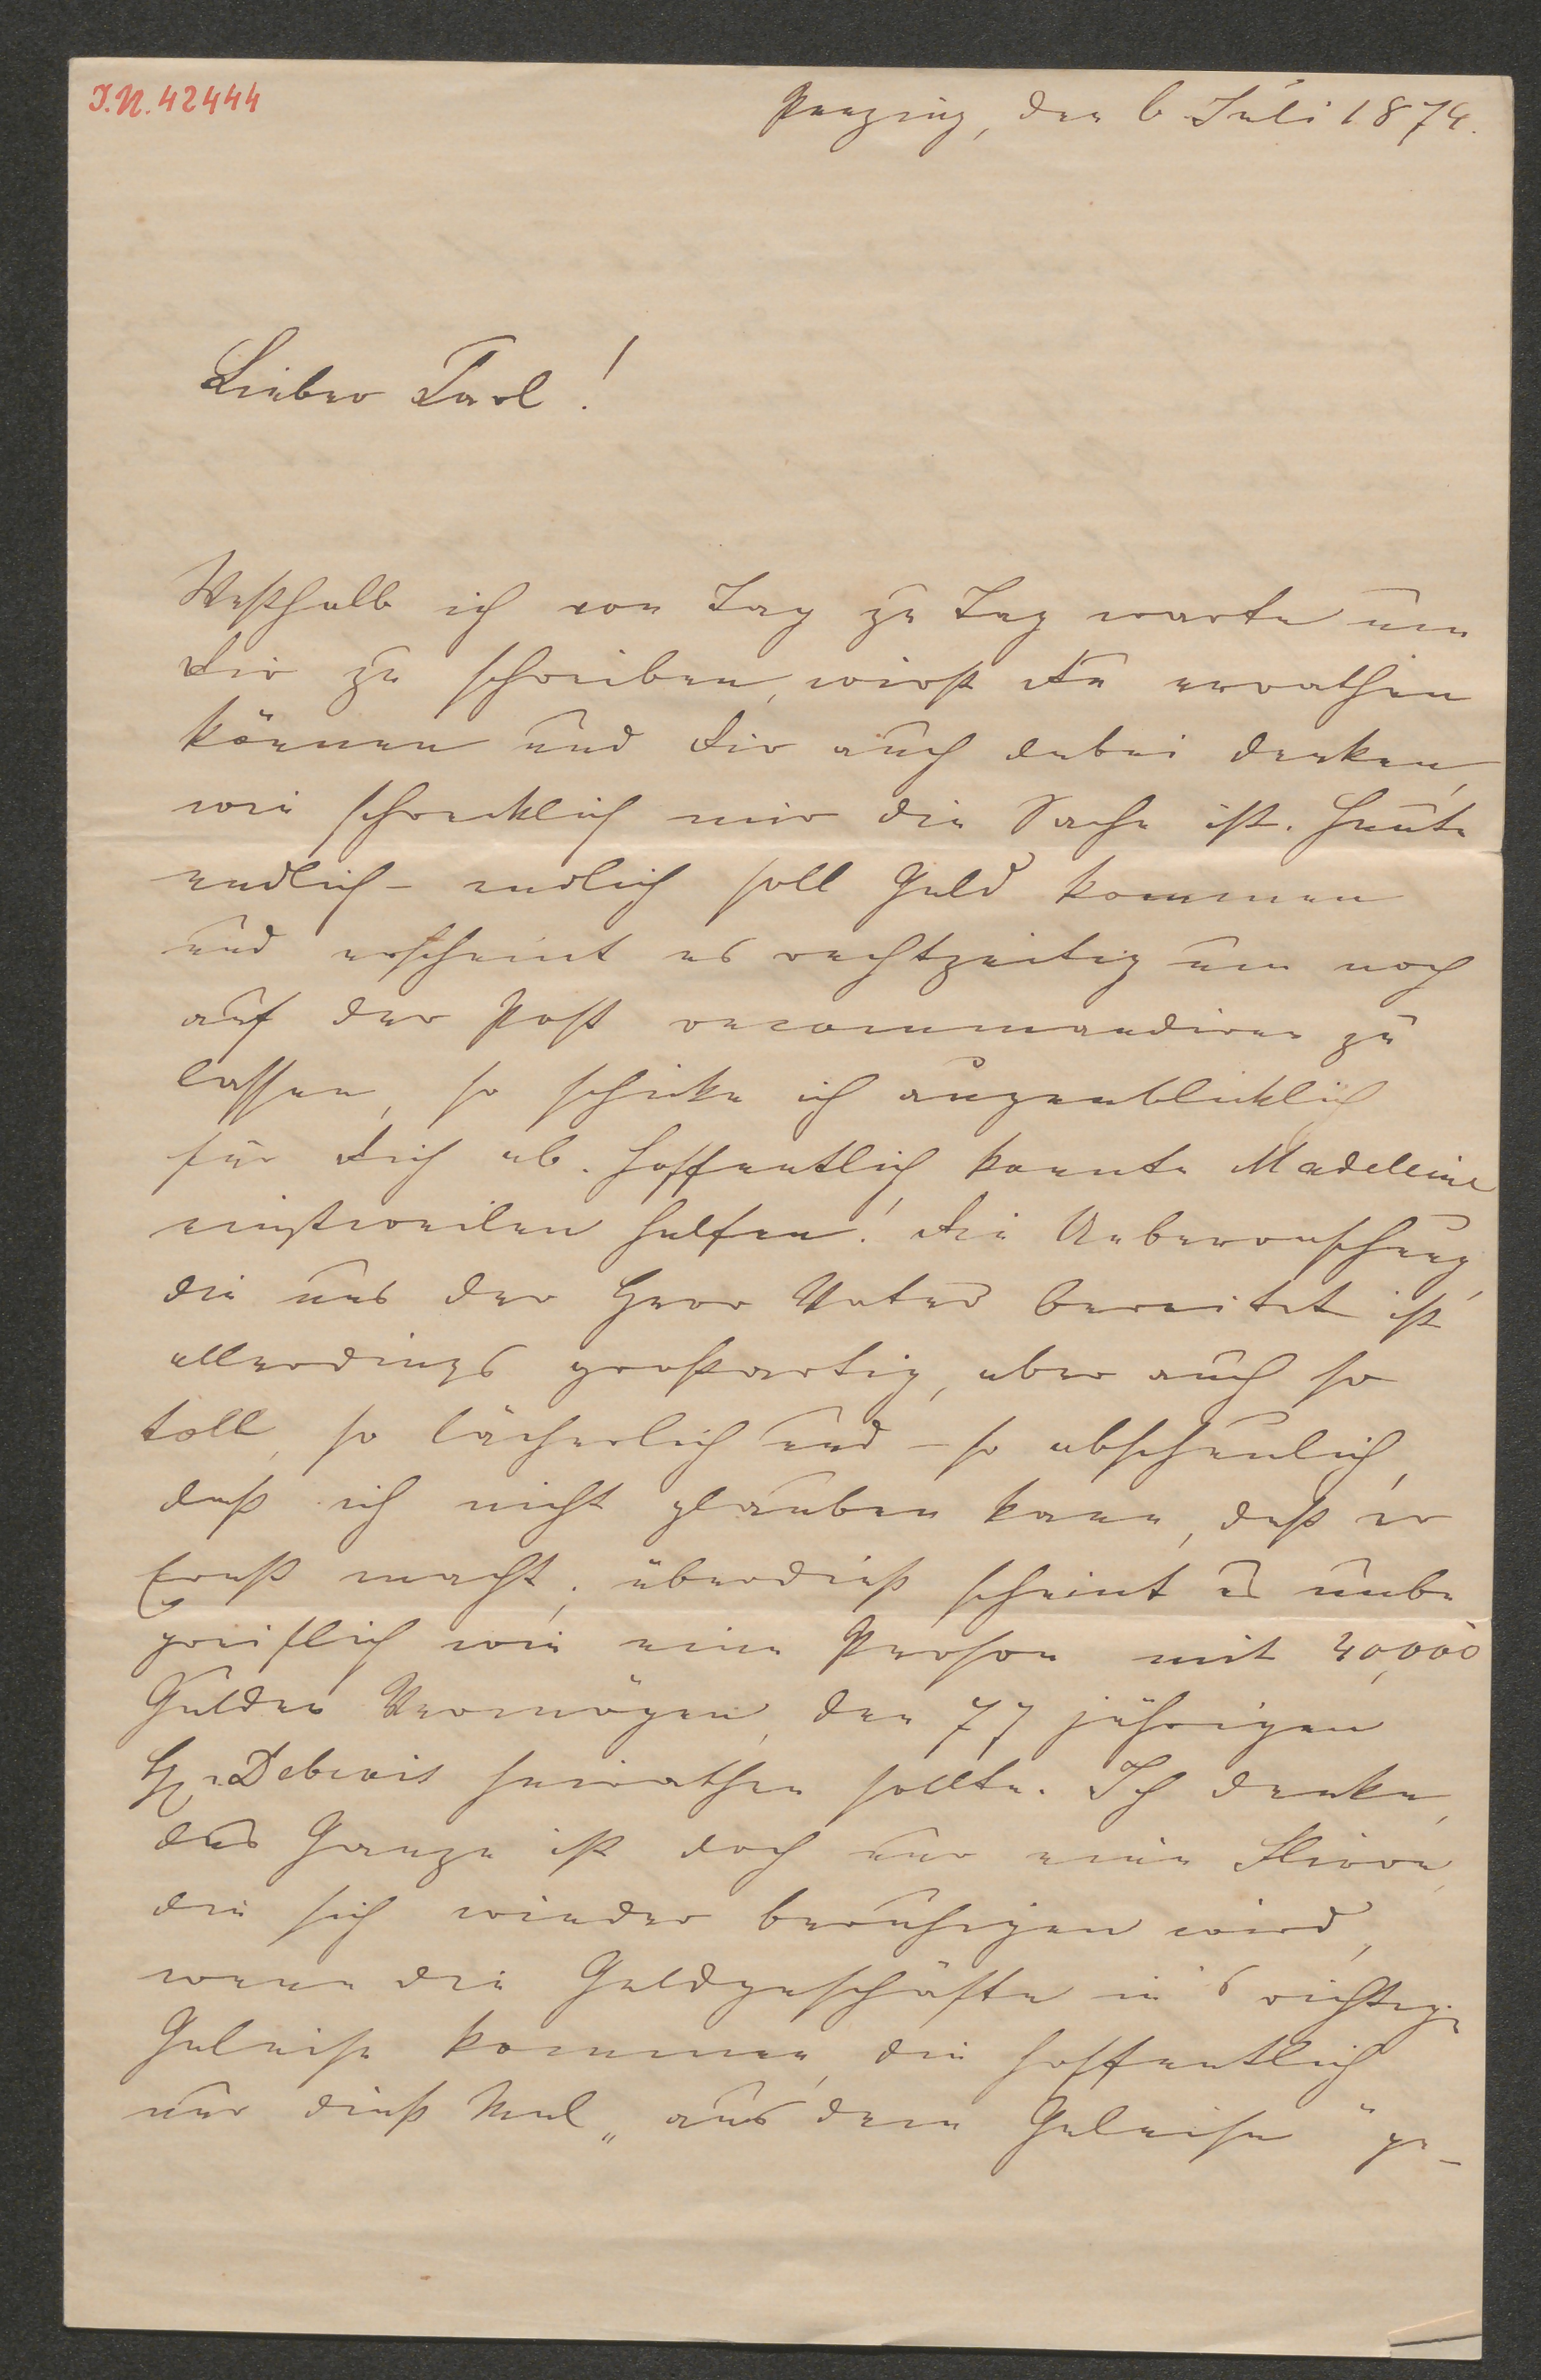 I.N. 42444
Penzing, den 6 Juli 1874.
Lieber Karl!
Weßhalb ich von Tag zu Tag warte um
Dir zu schreiben, wirst Du errathen
können und Dir auch dabei denken,
wie schrecklich mir die Sache ist. Heute
endlich – endlich soll Geld kommen
und erscheint es rechtzeitig um noch
auf der Post recommandiren zu
lassen, so schicke ich augenblicklich
für Dich ab. Hoffentlich konnte Madeleine
einstweilen helfen! Die Ueberraschung,
die uns der Herr Vater bereitet ist
allerdings großartig, aber auch so
toll, so lächerlich und – so abscheulich,
daß ich nicht glauben kann, daß er
Ernst macht; überdieß scheint es unbe
greiflich wie eine Person mit 40,000
Gulden Vermögen, den 77 jährigen
H. Debrois heirathen sollte. Ich denke,
das Ganze ist doch nur eine
die sich wieder beruhigen wird,
wenn die Geldgeschäfte in's richtige
Geleise kommen, die hoffentlich
nur dieß Mal „aus dem Geleise" ge-